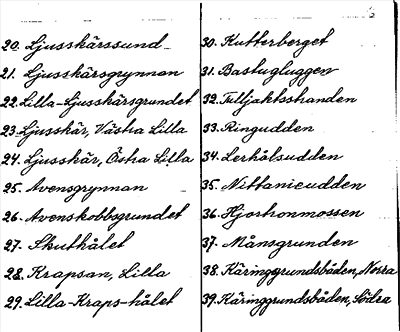 20. Ljusskärssund
21. Ljusskärsgrynnan
22. Lilla-Ljusskärsgrundet
23. Ljusskär, Västra Lilla
24. Ljusskär, Östra Lilla
25. Avensgrynnan
26. Avenskobbsgrundet
27. Skuthålet
28. Krapsan, Lilla
29. Lilla-Kraps-hålet
30. Kutterberget
31. Bastugluggen
32. Tulljaktsstranden
33. Ringudden
34. Lerhålsudden
35. Nittanieudden
36. Hjortronmossen
37. Månsgrunden
38. Käringgrundsbåden, Norra
39. Käringgrundsbåden, Södra